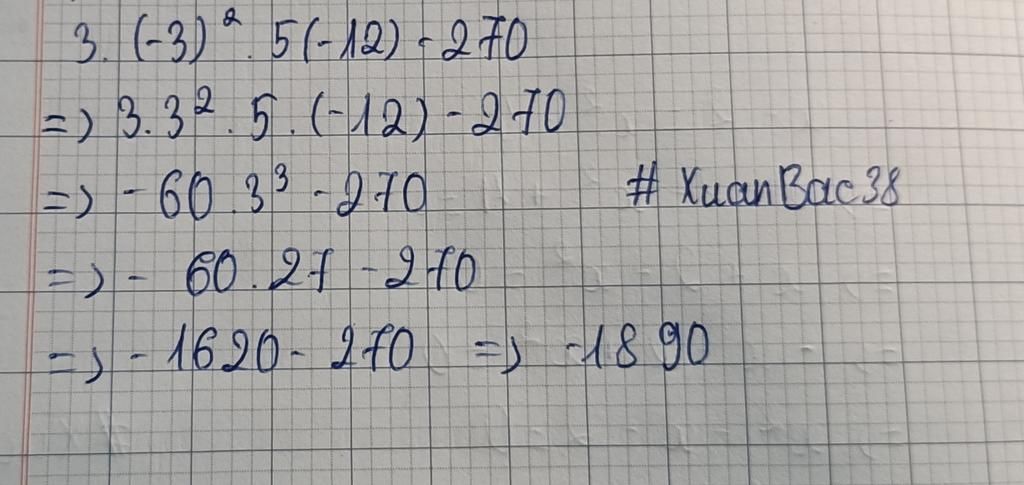 3. (-3)². 5(-12) - 270
=> 3.3². 5 . (-12) - 270
=> - 60 . 3³ - 270
# XuanBac38
=> - 60 . 27 - 270
=> - 1620 - 270 => -1890